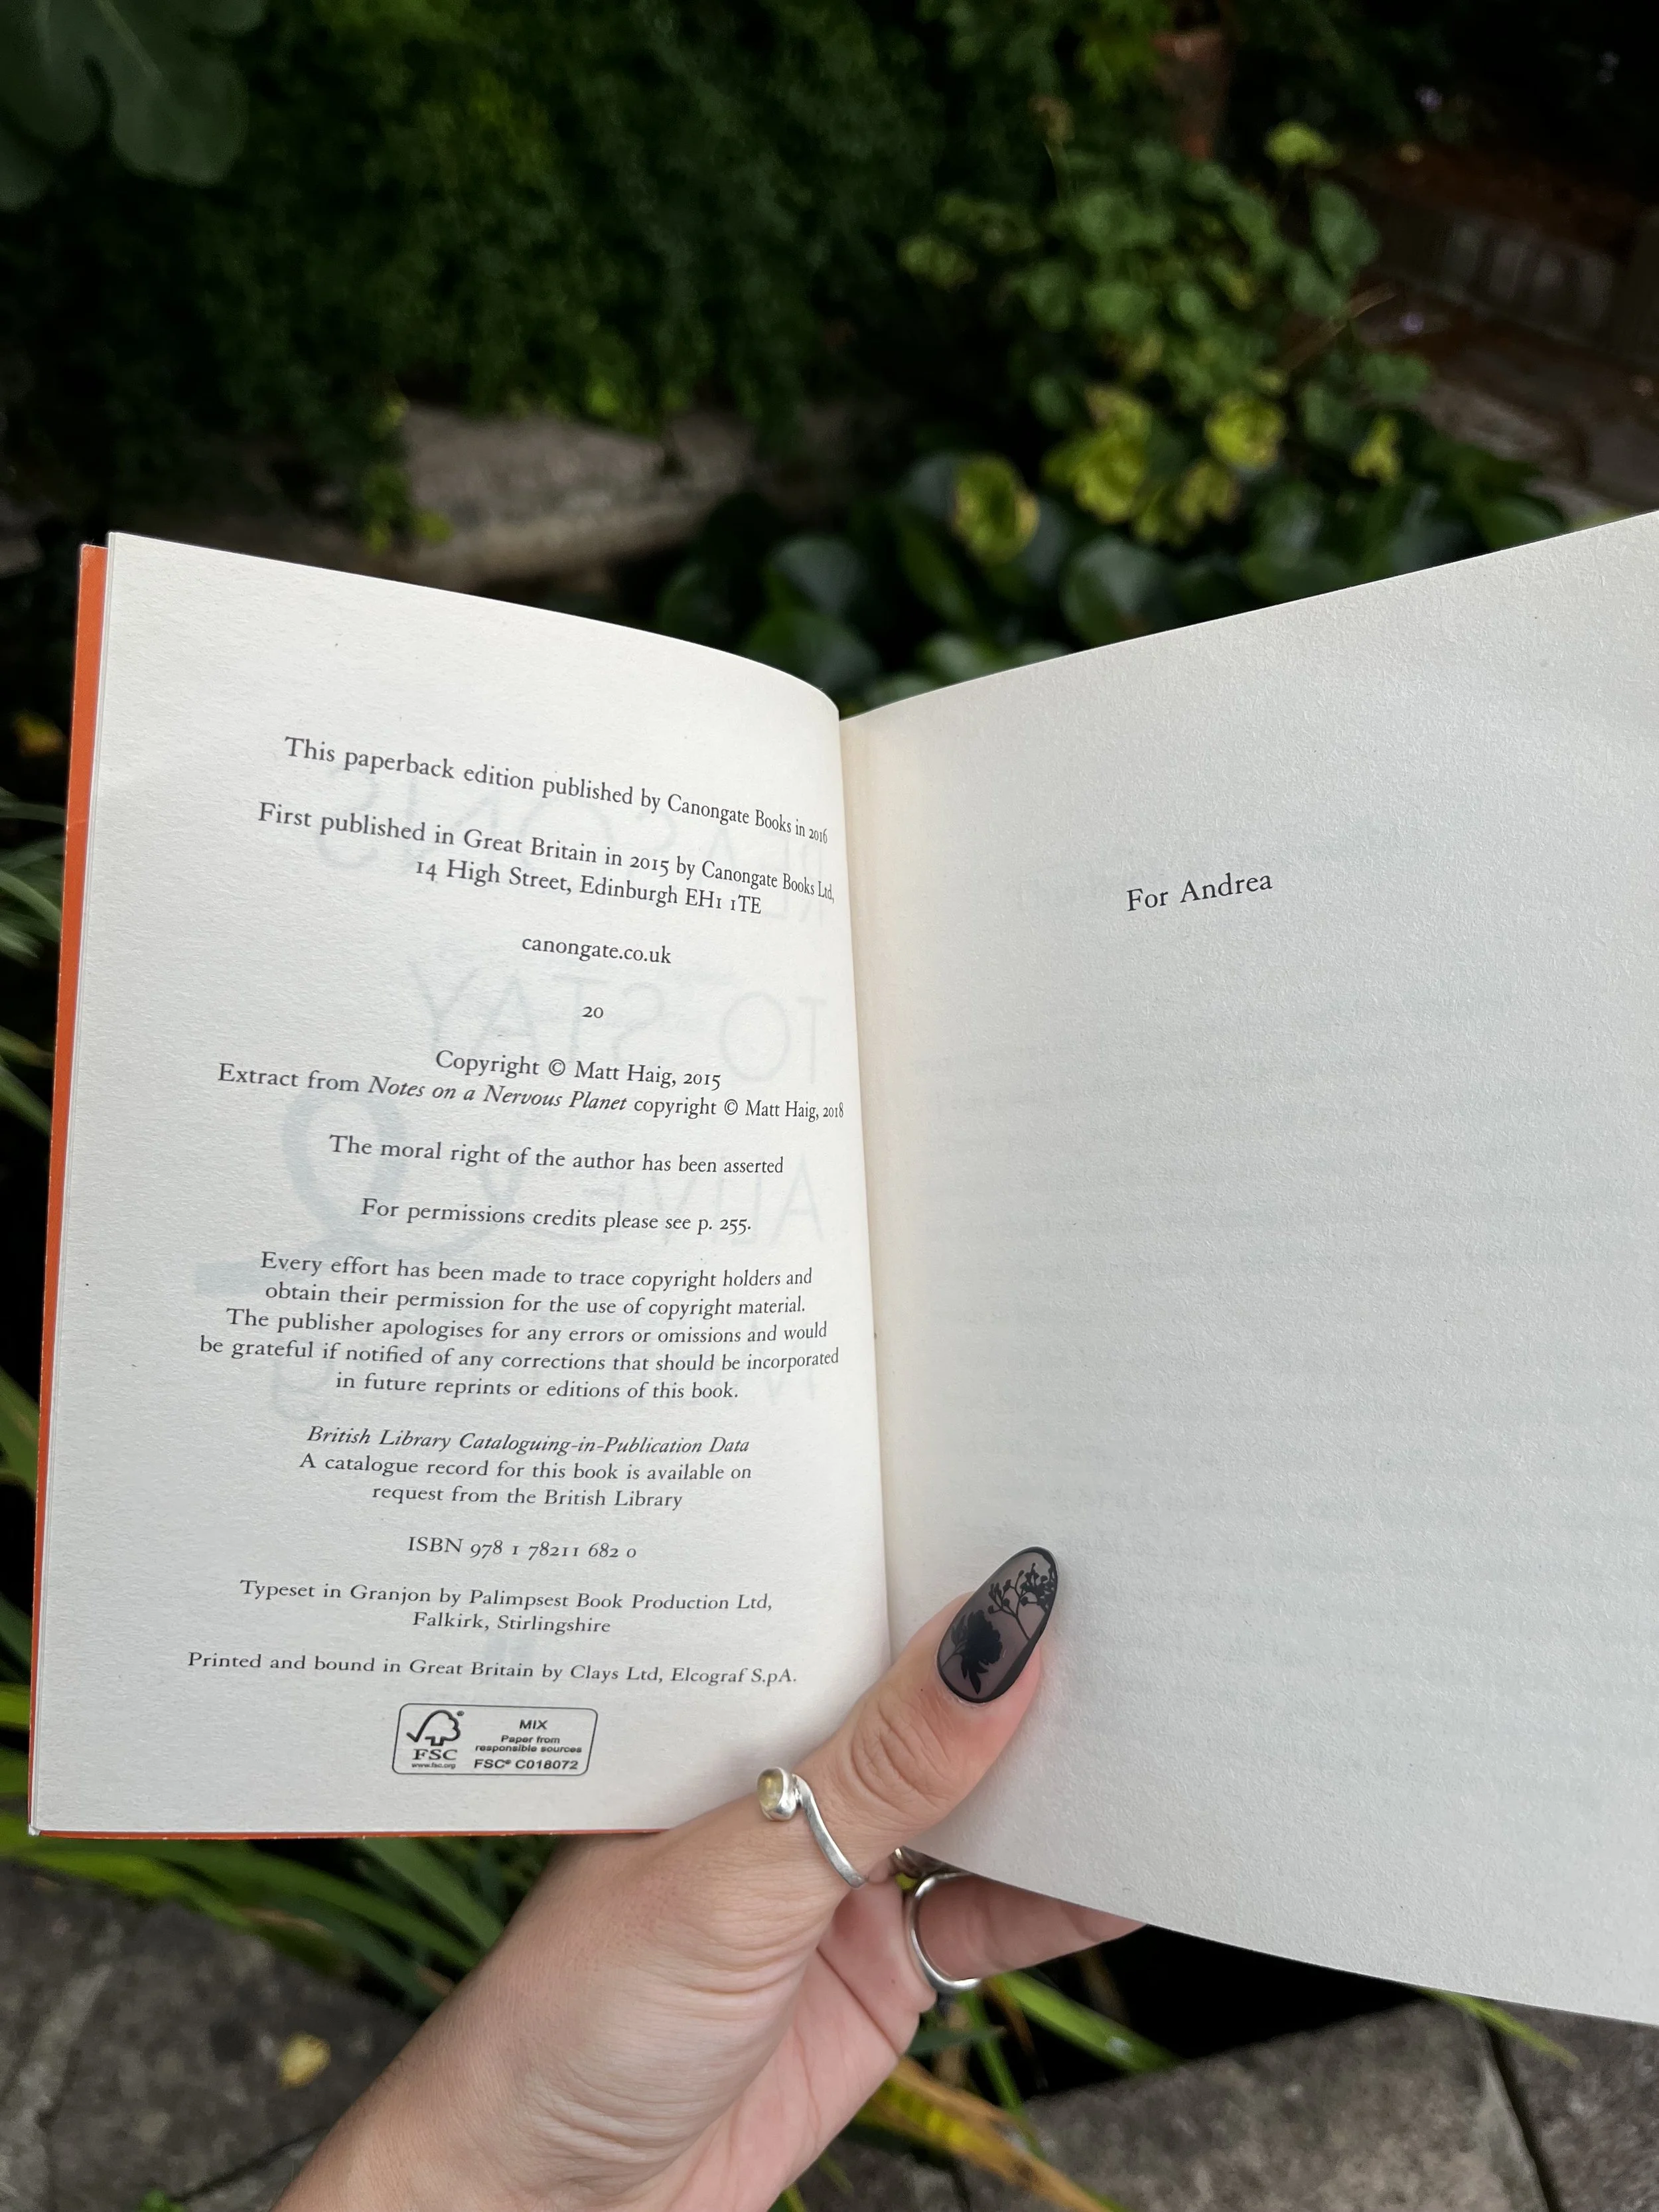 This paperback edition published by Canongate Books in 2016
First published in Great Britain in 2015 by Canongate Books Ltd,
14 High Street, Edinburgh EH1 1TE
canongate.co.uk
20
Copyright © Matt Haig, 2015
Extract from Notes on a Nervous Planet copyright © Matt Haig, 2018
The moral right of the author has been asserted
For permissions credits please see p. 255.
Every effort has been made to trace copyright holders and
obtain their permission for the use of copyright material.
The publisher apologises for any errors or omissions and would
be grateful if notified of any corrections that should be incorporated
in future reprints or editions of this book.
British Library Cataloguing-in-Publication Data
A catalogue record for this book is available on
request from the British Library
ISBN 978 1 78211 682 0
Typeset in Granjon by Palimpsest Book Production Ltd,
Falkirk, Stirlingshire
Printed and bound in Great Britain by Clays Ltd, Elcograf S.p.A.
FSC
www.fsc.org
MIX
Paper from
responsible sources
FSC® C018072
For Andrea